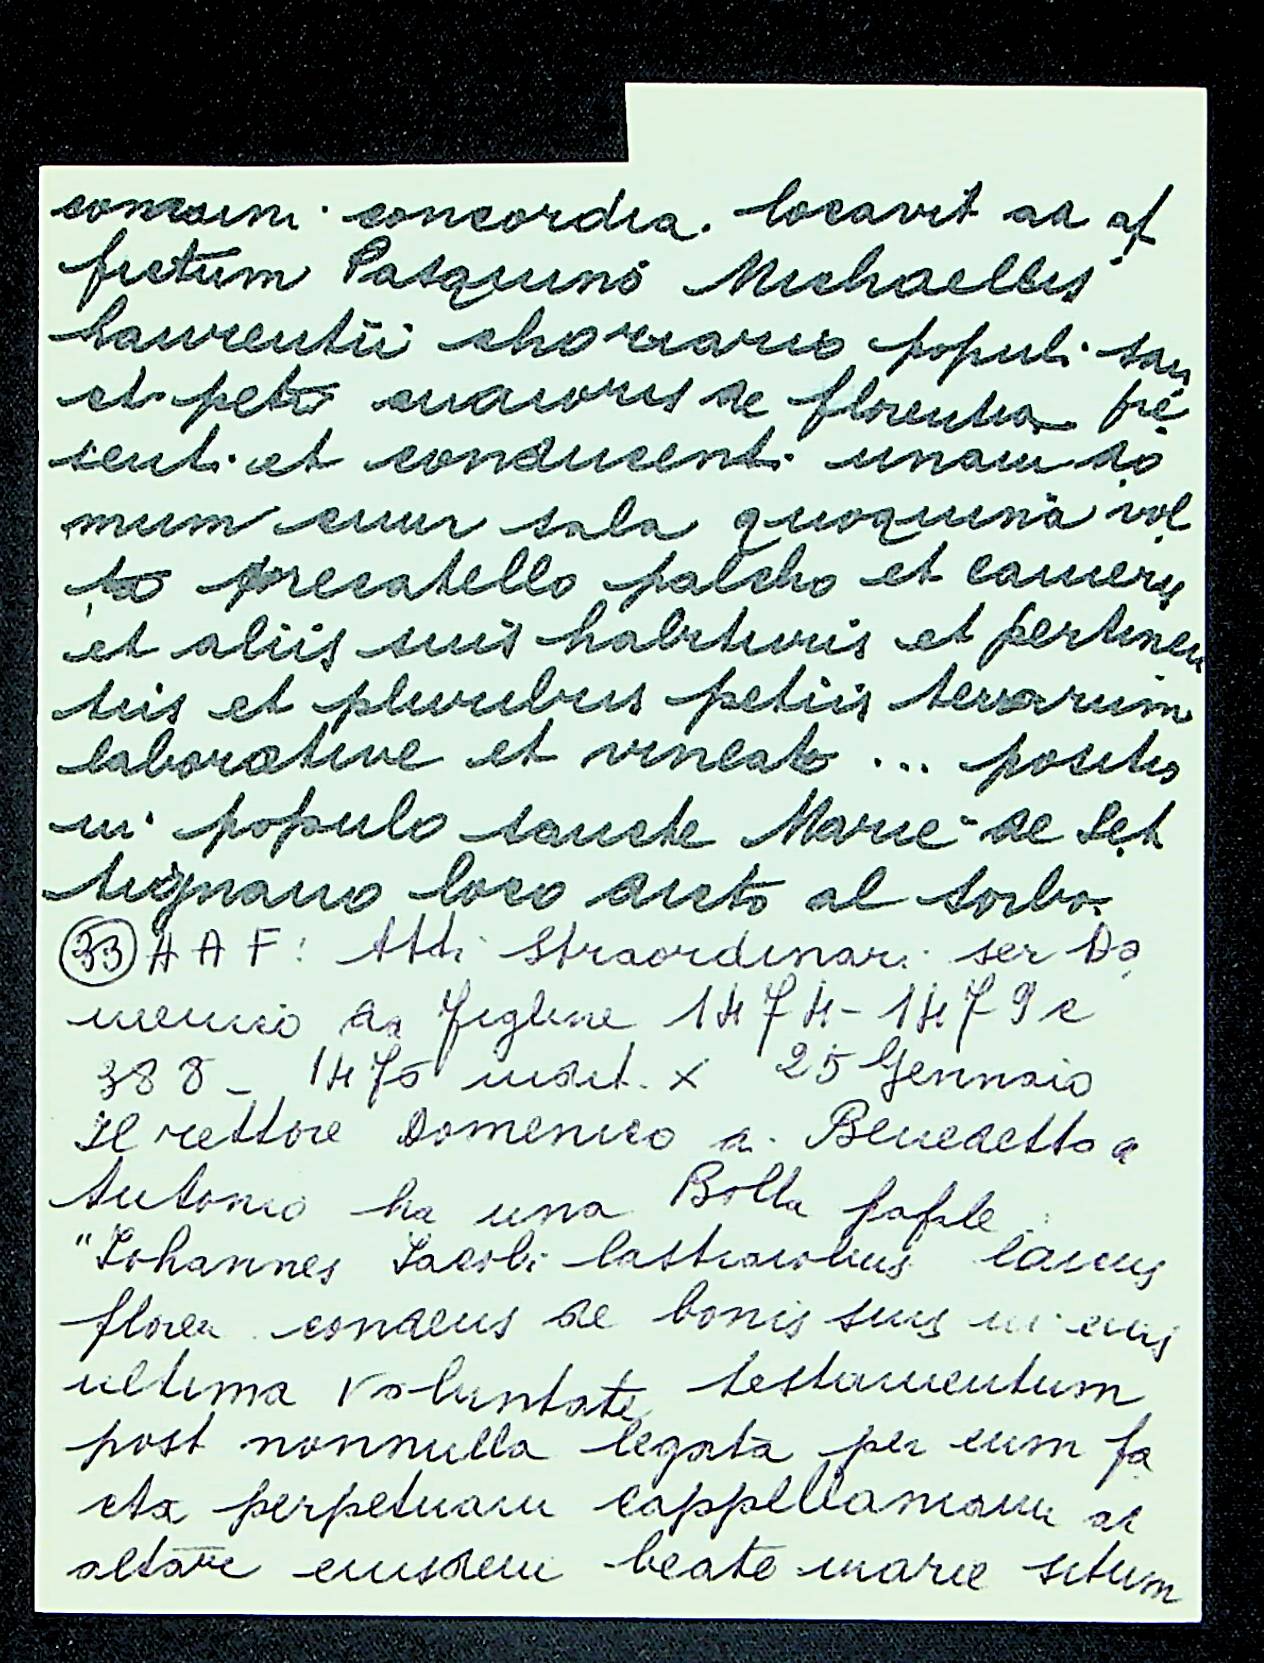 concordia. locavit ad af
fictum Pasquino Michaellis
Laurentii populi san
cti petri maioris de florentia pre
senti et conducenti unam do
mum cum sala quoquina vol
ta precatello palcho et cameris
et aliis suis habituris et pertinen
tiis et pluribus petiis terrarum
laborative et vineate ... positis
in populo sancte Marie de Set
tignano loco dicto al sorbo.
(33) A A F: Atti Straordinari ser Do
menico da Figline 1474-1479 c
388 - 1475 indit. X 25 Gennaio
Il rettore Domenico d. Benedetto d
Antonio ha una Bolla papale
"Johannes Jacobi lastraiolius laicus
floren condens de bonis suis in eius
ultima voluntate testamentum
post nonnulla legata per eum fa
cta perpetuam cappellaniam ad
altare eiusdem beate marie situm